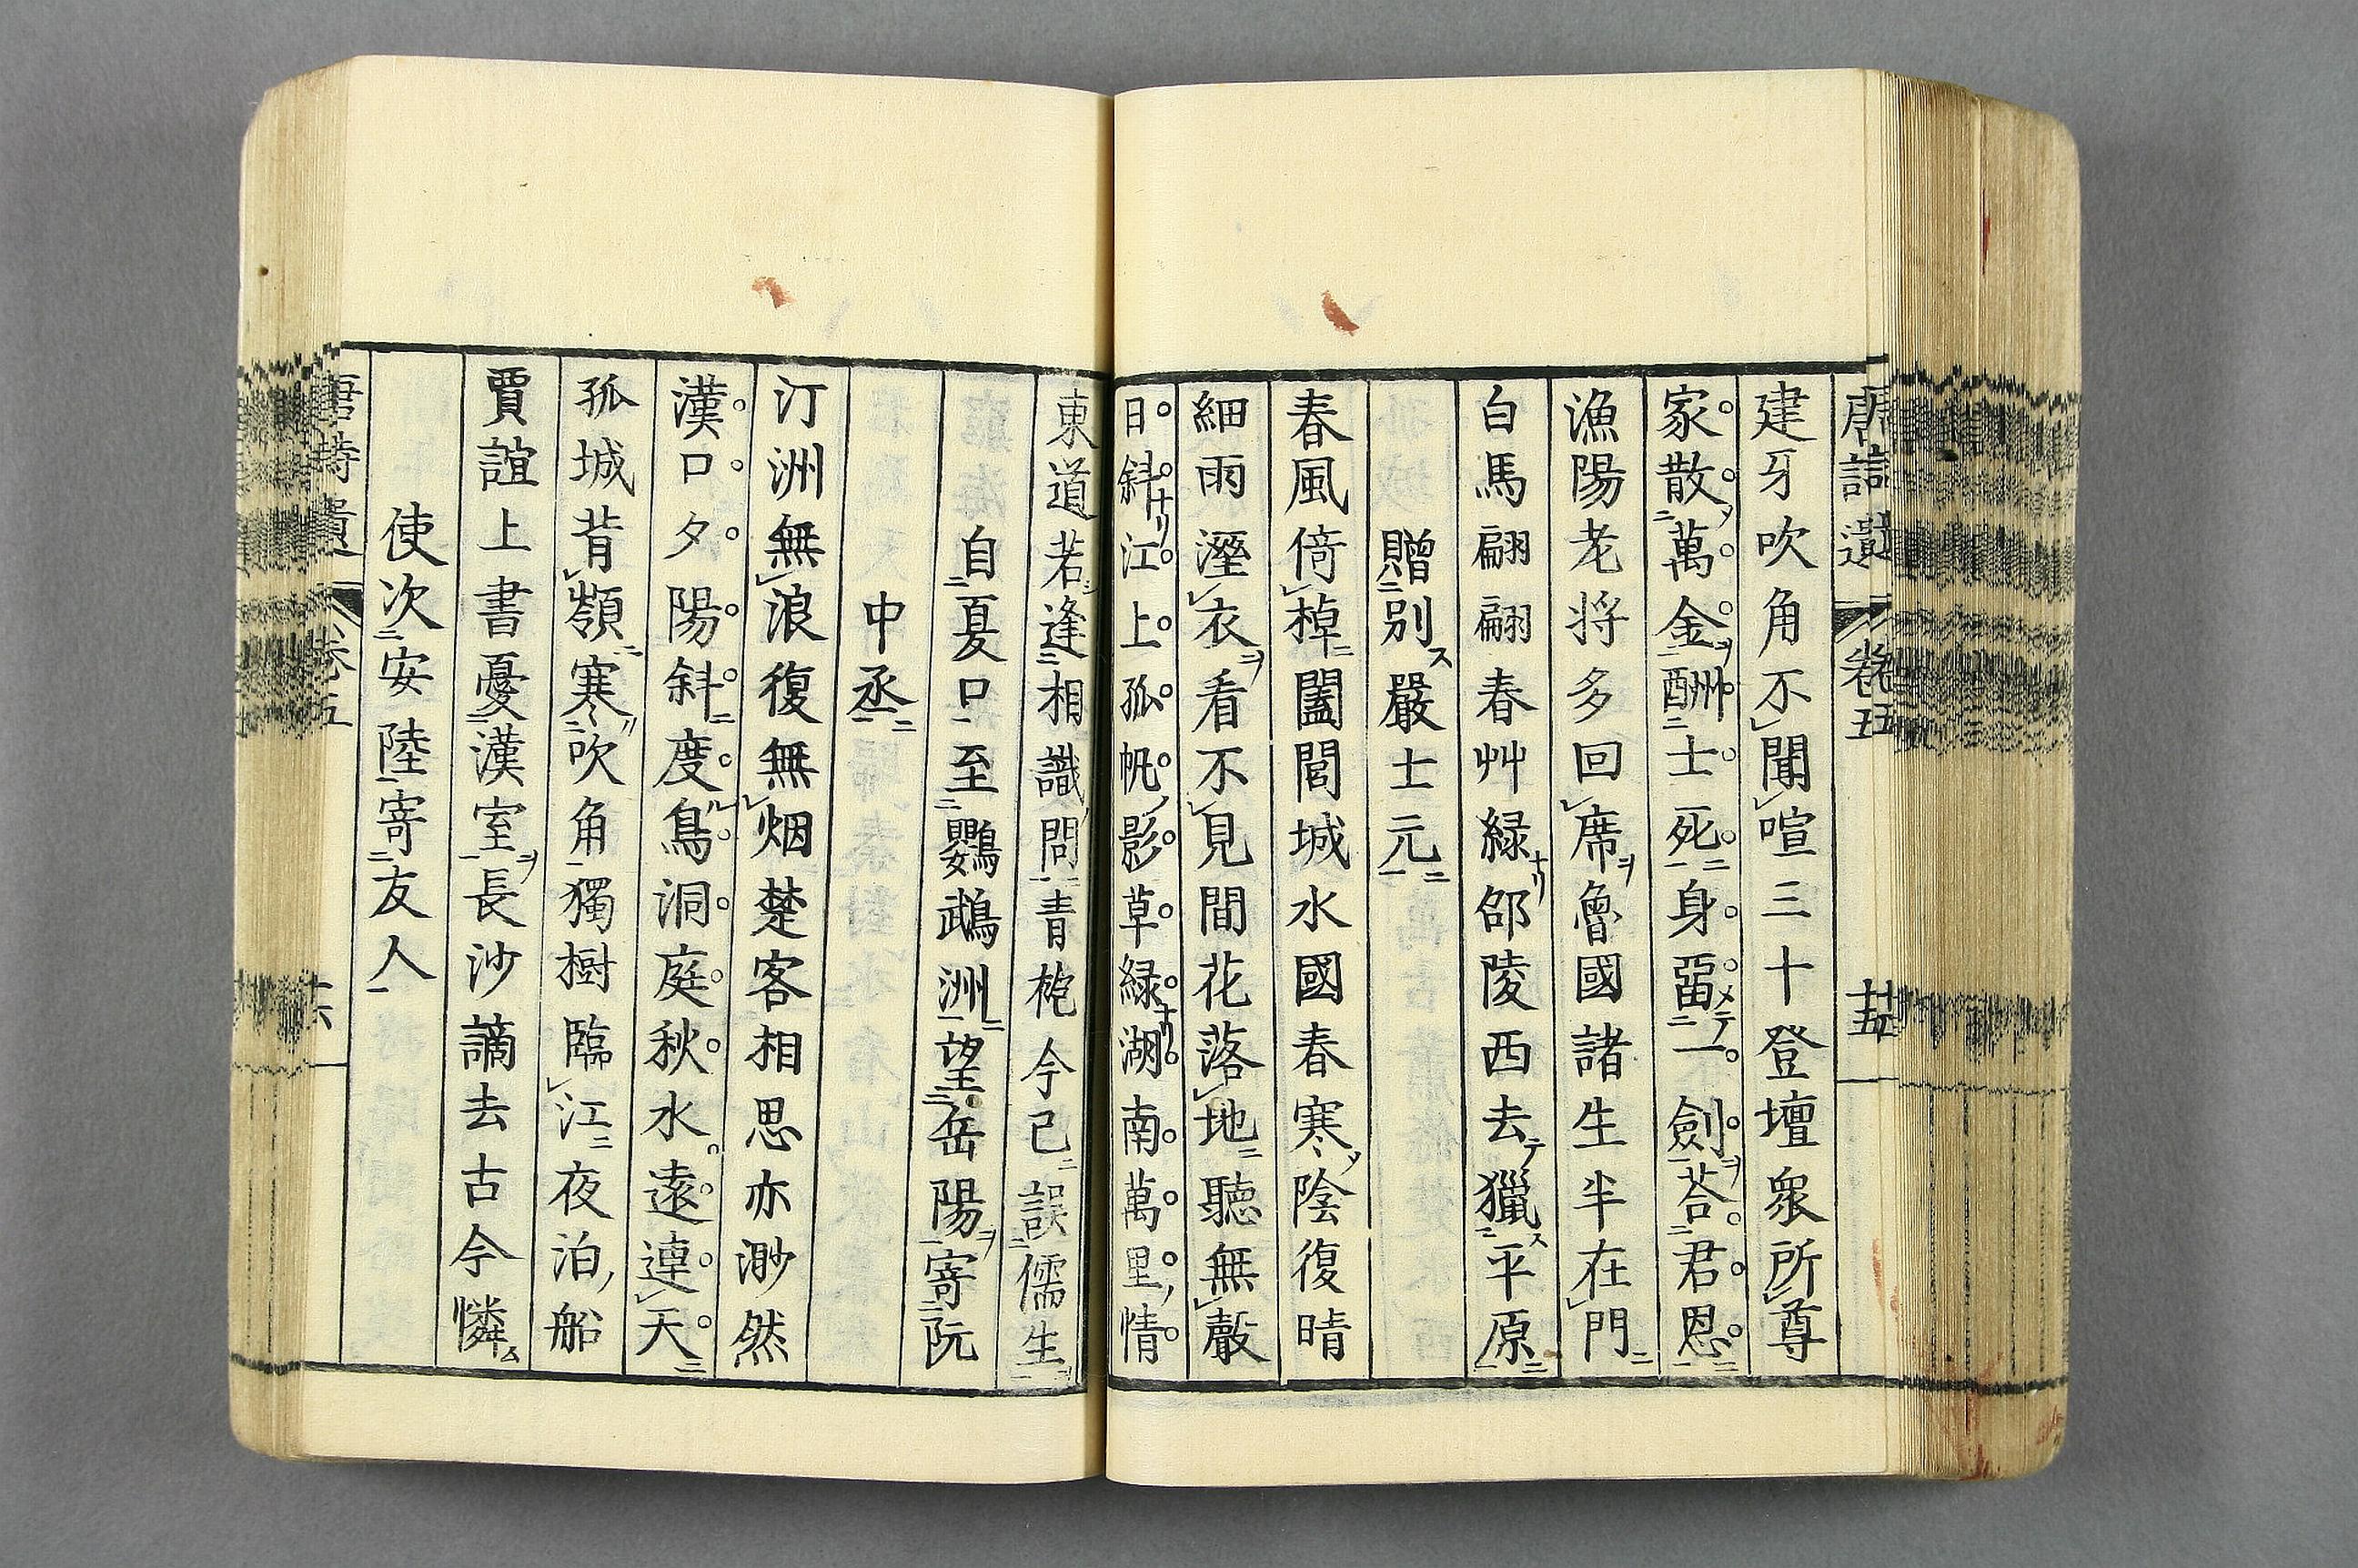 唐詩選 卷五 廿五
建牙吹角不聞喧三十登壇衆所尊
家散萬金酬士死身畱一劍荅君恩
漁陽老将多回席魯國諸生半在門
白馬翩翩春艸緑邵陵西去獵平原
贈別嚴士元
春風倚棹闔閭城水國春寒陰復晴
細雨溼衣看不見閒花落地聽無聲
日斜江上孤帆影草緑湖南萬里情
東道若逢相識問青袍今已誤儒生
自夏口至鸚鵡洲望岳陽寄阮
中丞
汀洲無浪復無烟楚客相思亦渺然
漢口夕陽斜度鳥洞庭秋水遠連天
孤城背嶺寒吹角獨樹臨江夜泊船
賈誼上書憂漢室長沙謫去古今憐
使次安陸寄友人
唐詩選 卷五